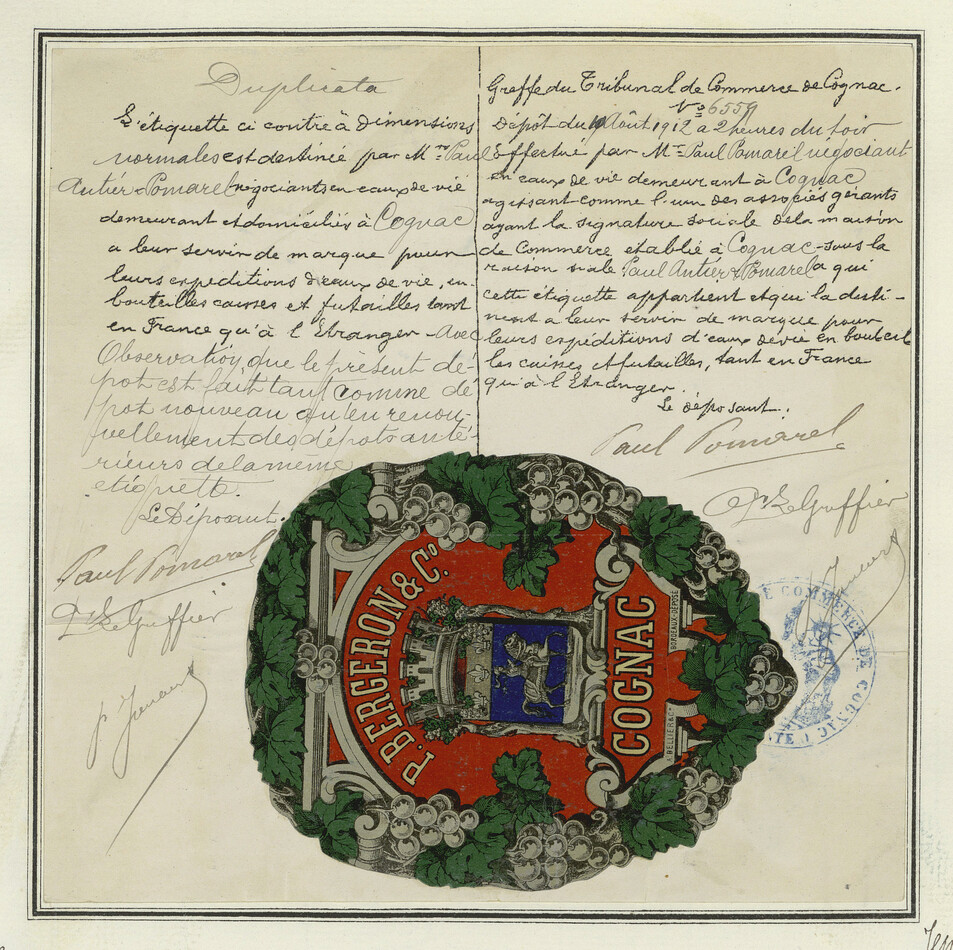 Duplicata
L'étiquette ci contre à dimensions
normales est destinée par Mrs Paul
Antier & Pomarel négociants en eaux de vie
demeurant et domiciliés à Cognac
a leur servir de marque pour
leurs expeditions d'eaux de vie, en
bouteilles caisses et futailles tant
en France qu'à l'Etranger - Avec
Observation, que le présent dé-
pot est fait tant comme dé
pot nouveau qu'en renou-
vellement des dépots anté-
rieurs de la même
etiquette.
Le Déposant.
Paul Pomarel
Le Greffier
Greffe du Tribunal de Commerce de Cognac.
No 6559
Dépôt du Août 1912 a 2 heures du soir
Effectué par Mr Paul Pomarel négociant
en eaux de vie demeurant à Cognac
agissant comme l'un des associés gérants
ayant la signature sociale de la maison
de Commerce etablie à Cognac - sous la
raison siale Paul Antier & Pomarel a qui
cette étiquette appartient et qui la desti-
nent a leur servir de marque pour
leurs expéditions d'eaux de vie en bouteil
les caisses et futailles, tant en France
qu'à l'Etranger.
Le déposant.
Paul Pomarel
Le Greffier
P. BERGERON & Co.
COGNAC
BORDEAUX-DÉPOSÉ
BELLIER & Cie
DE COMMERCE DE COGNAC